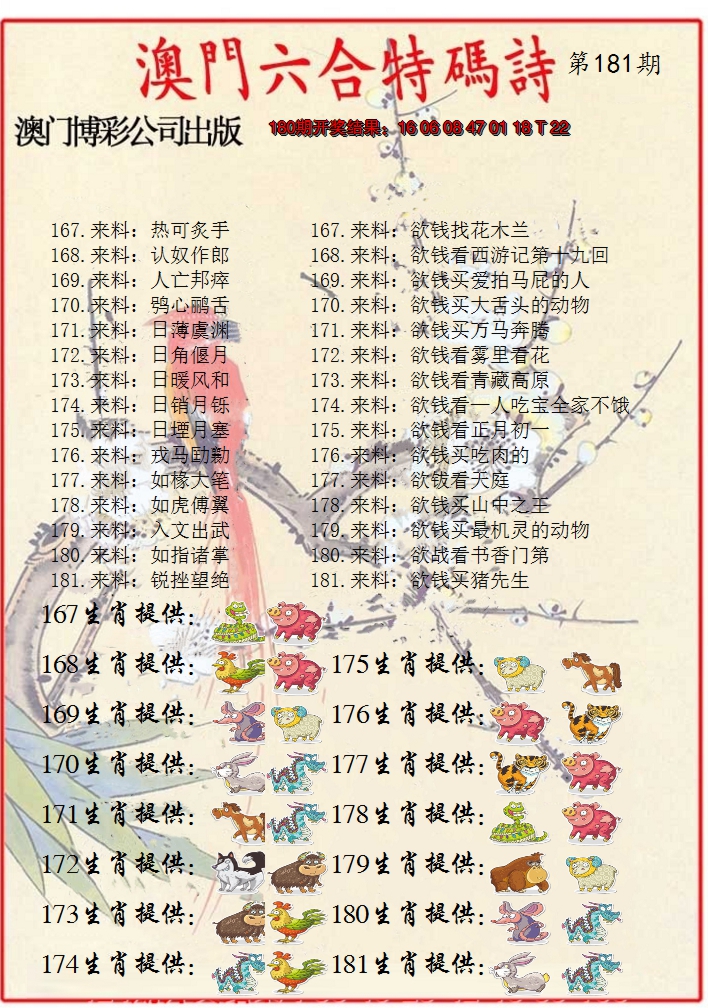 澳門六合特碼詩 第181期
澳门博彩公司出版 180期开奖结果：16 06 08 47 01 18 T 22
167.来料：热可炙手 167.来料：欲钱找花木兰
168.来料：认奴作郎 168.来料：欲钱看西游记第十九回
169.来料：人亡邦瘁 169.来料：欲钱买爱拍马屁的人
170.来料：鸮心鹂舌 170.来料：欲钱买大舌头的动物
171.来料：日薄虞渊 171.来料：欲钱买万马奔腾
172.来料：日角偃月 172.来料：欲钱看雾里看花
173.来料：日暖风和 173.来料：欲钱看青藏高原
174.来料：日销月铄 174.来料：欲钱看一人吃宝全家不饿
175.来料：日堙月塞 175.来料：欲钱看正月初一
176.来料：戎马劻勷 176.来料：欲钱买吃肉的
177.来料：如椽大笔 177.来料：欲钱看天庭
178.来料：如虎傅翼 178.来料：欲钱买山中之王
179.来料：入文出武 179.来料：欲钱买最机灵的动物
180.来料：如指诸掌 180.来料：欲战看书香门第
181.来料：锐挫望绝 181.来料：欲钱买猪先生
167生肖提供：
168生肖提供： 175生肖提供：
169生肖提供： 176生肖提供：
170生肖提供： 177生肖提供：
171生肖提供： 178生肖提供：
172生肖提供： 179生肖提供：
173生肖提供： 180生肖提供：
174生肖提供： 181生肖提供：